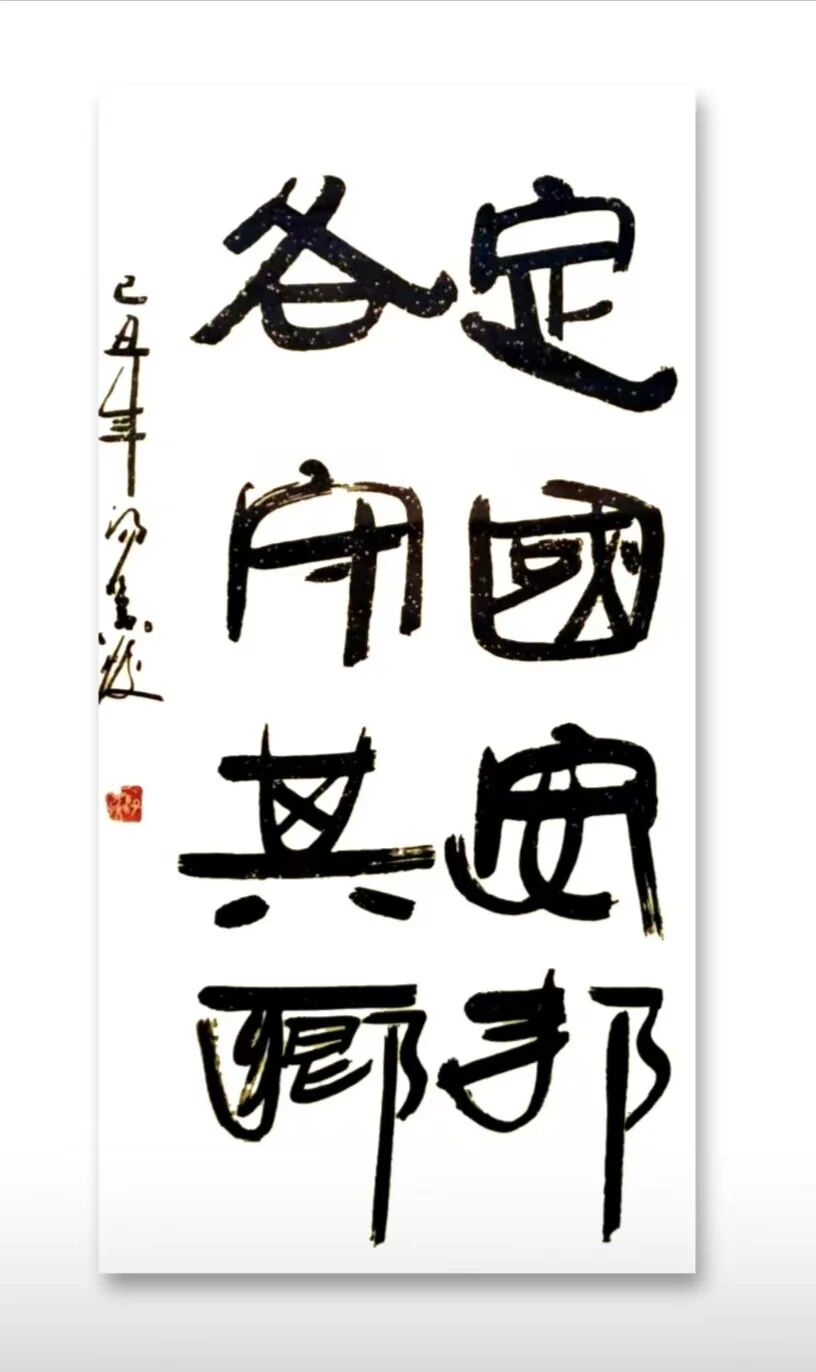 定國安邦
各守其鄉
己丑年